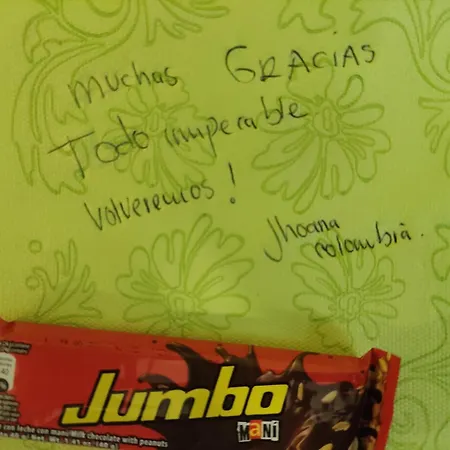 Muchas GRACIAS
Todo imperable
Volveremos!
Jhoana
colombia.
Jumbo
MANÍ
con leche con maní/Milk chocolate with peanuts